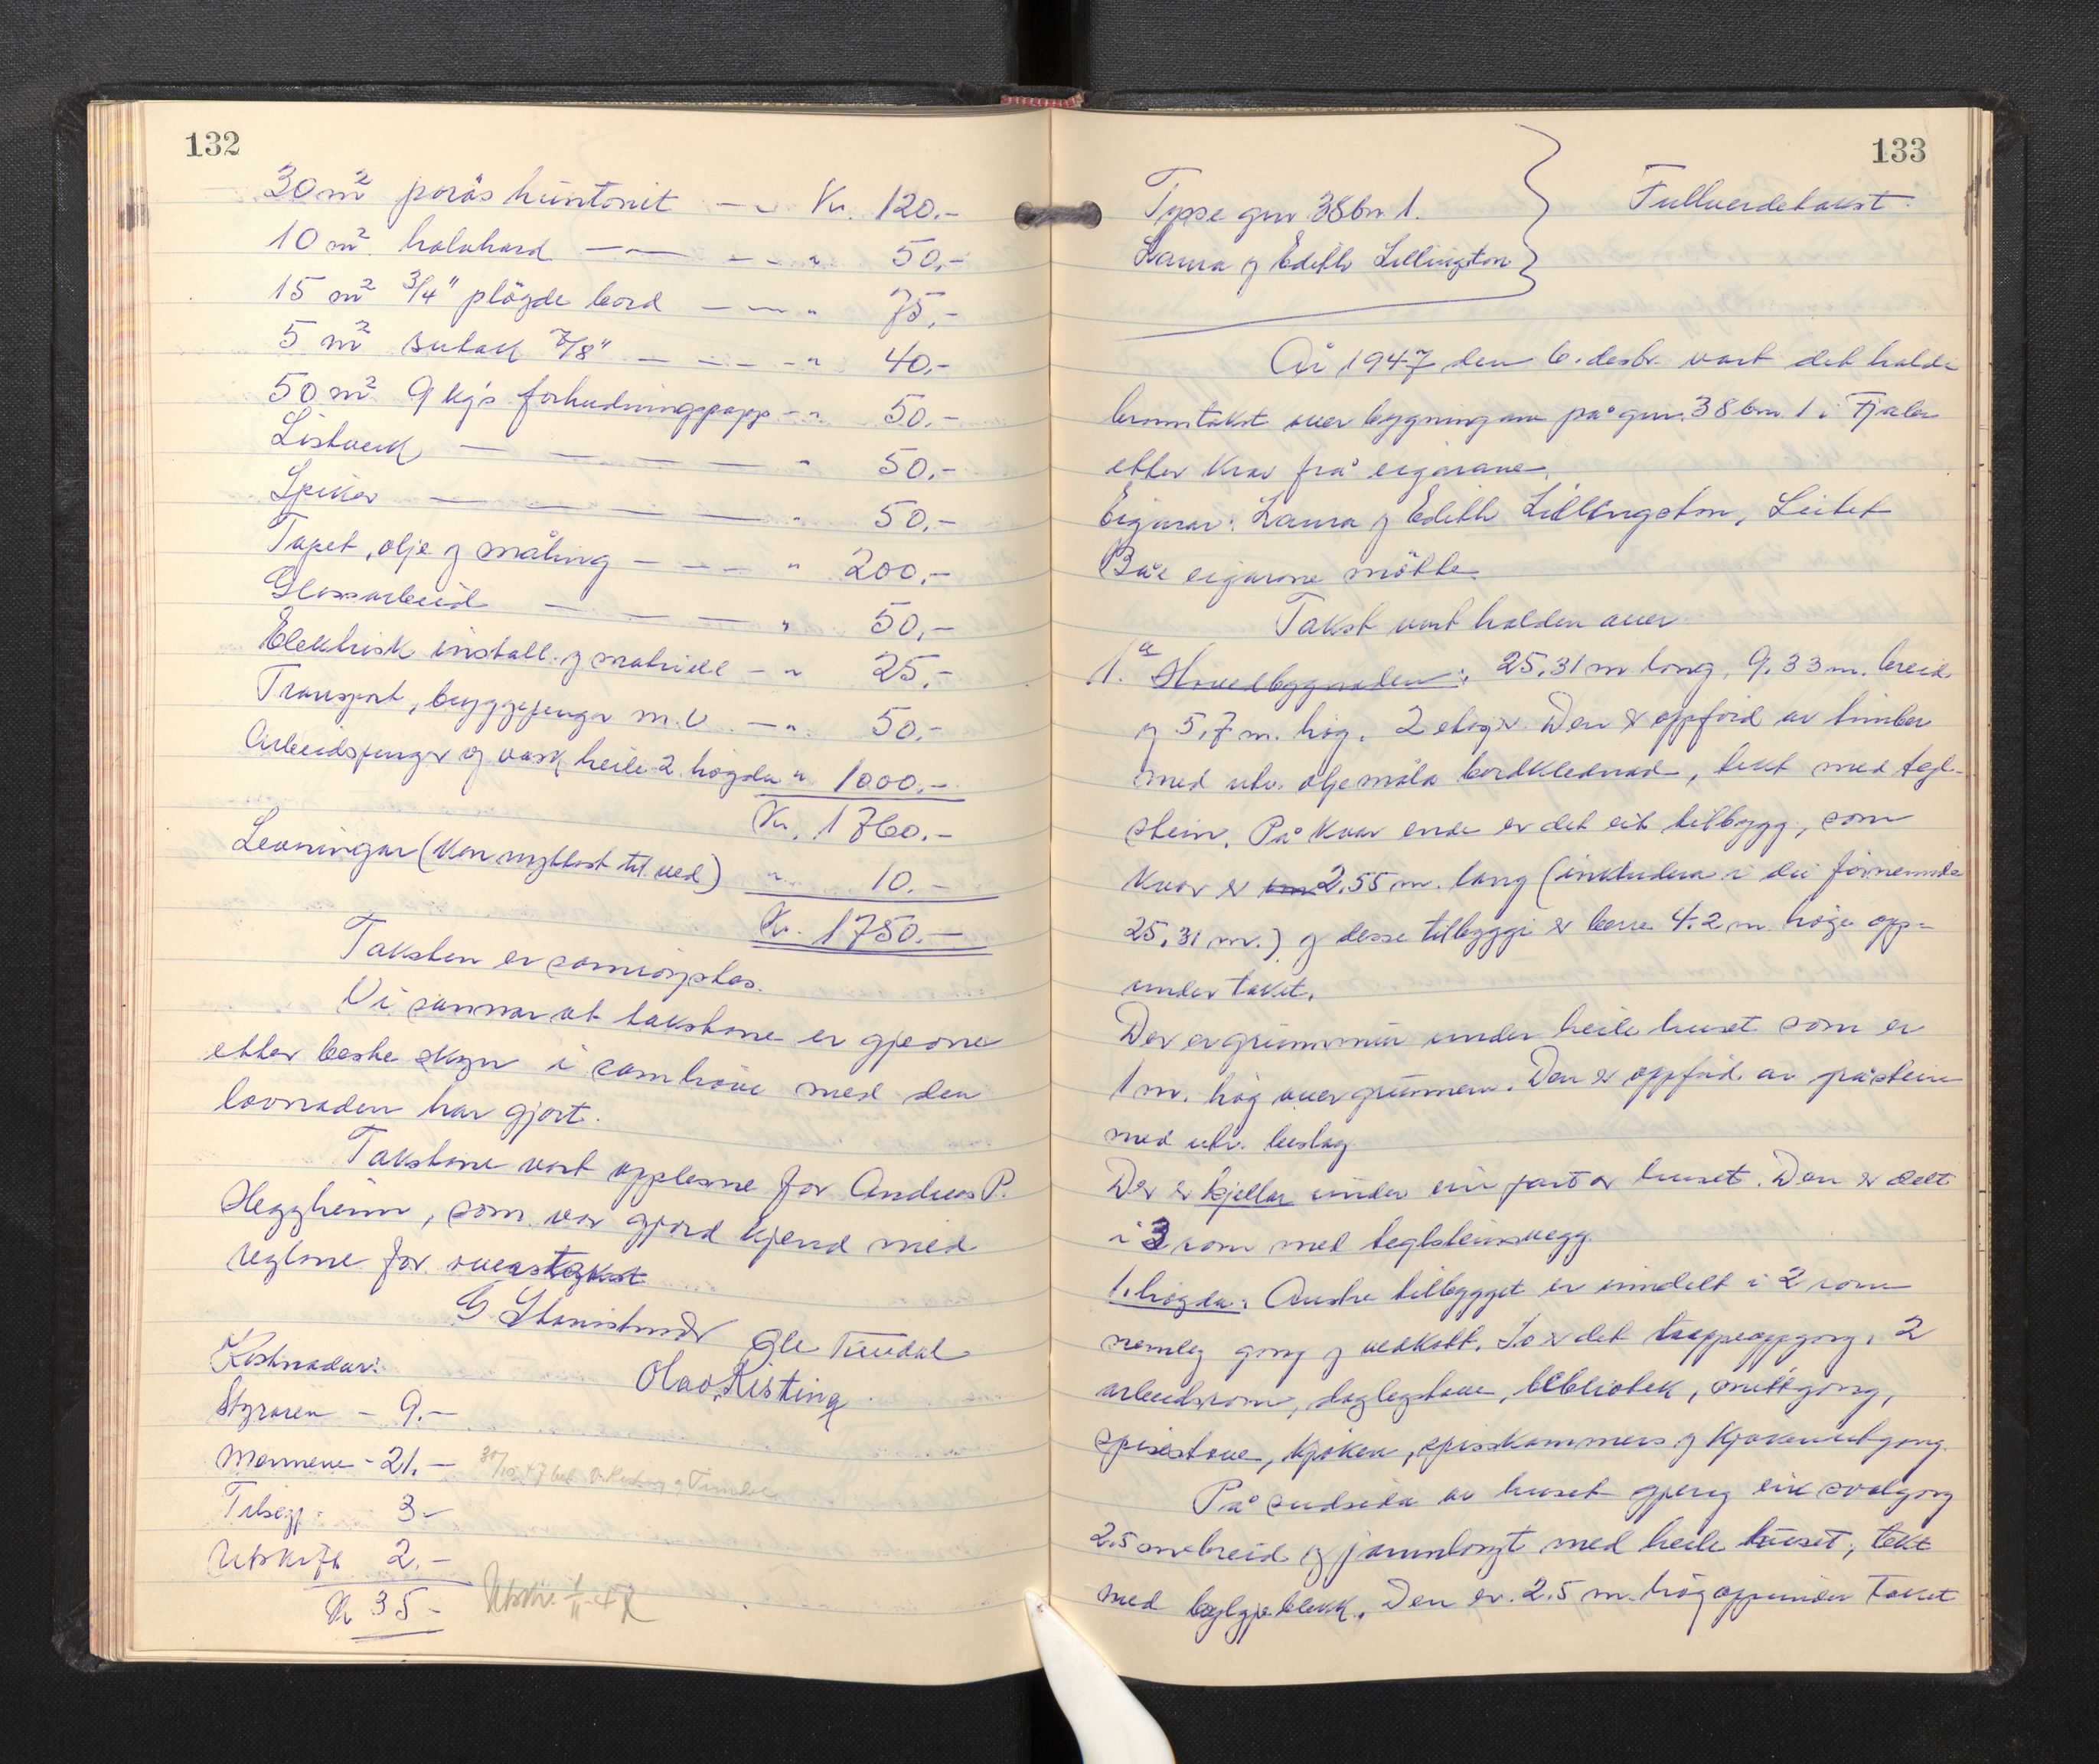 132
30 m² porøs huntonit — " Kr. 120.-
10 m² halvhard — — - - " 50,-
15 m² 3/4" pløgde bord — — - " 75,-
5 m² sutak 7/8" — — - - " 40,-
50 m² 9 kg's forhudningspapp - " 50.-
Listverk — — — — " 50.-
Spiker — — — — " 50.-
Tapet, olje og måling — — — " 200.-
Glassarbeid — — — " 50,-
Elektrisk install. og matriell - " 25.-
Transport, byggjepengar m.v. — " 50.-
Arbeidspengar og vask heile 2. høgda " 1000.-
Kr. 1760.-
Levningar (kan nyttast til ved) " 10.-
Kr. 1750.-
Taksten er samrøystes.
Vi sannar at takstane er gjevne
etter beste skyn i samhøve med den
lovnaden har gjort.
Takstane vart opplesne for Andreas P.
Heggheim, som var gjord kjend med
reglane for overtakst
G Staurstrand Ole Tundal
Olav Risting
Kostnadar:
Styraren - 9.-
Mennene - 21.-
Tilsegj. 3-
Utskrift 2.-
Kr 35-
133
Tysse gnr 38 bn 1.
Laura og Edith Lillingston
Fullverdetakst.
År 1947 den 6. desbr. vart det halde
branntakst over bygningane på gnr. 38 bnr. 1 i Fjaler
etter krav frå eigarane.
Eigarar: Laura og Edith Lillingston, Leitet
Båe eigarane møtte.
Takst vart halden over
1. a Hovedbygnaden: 25,31 m lang, 9.33 m. breid
og 5,7 m. høg. 2 etasjer. Den er oppførd av timber
med utv. oljemåla bordklednad, tekt med tegl-
stein. På kvar ende er det eit tilbygg, som
kvar er 2,55 m. lang (inkludera i dei førnemnde
25,31 m.) og desse tilbyggi er berre 4.2 m. høge opp-
under taket.
Der er grunnmur under heile huset som er
1 m. høg over grunnen. Den er oppførd av gråstein
med utv. beslag
Der er kjellar under ein part av huset. Den er delt
i 3 rom med teglsteinsvegg.
1. høgda: Austre tilbygget er inndelt i 2 rom
nemleg gong og vedkott. So er det trappeoppgong, 2
arbeidsrom, daglegstove, bibliotek, midtgong,
spisestove, kjøken, spisskammers og kjøkenutgong.
På sudsida av huset gjeng ein svalgong
2.5 m breid og jamnlangt med heile huset, tekt
med bylgjeblekk. Den er 2.5 m. høg oppunder taket